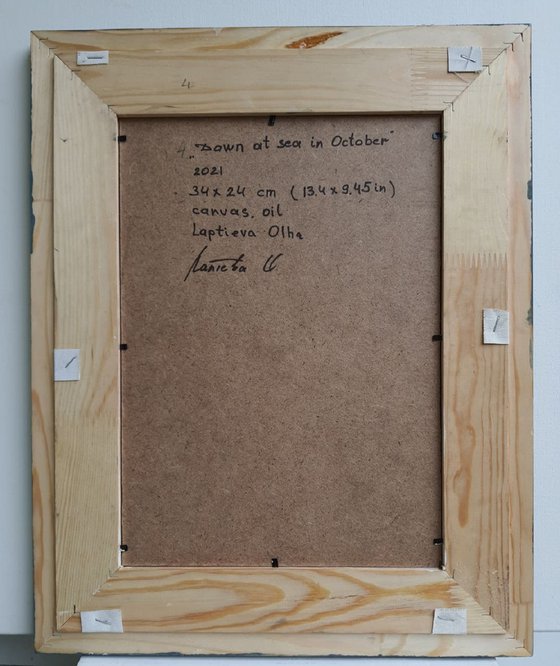 4
4 „Dawn at sea in October"
2021
34x24 cm (13.4x9.45in)
canvas, oil
Laptieva Olha